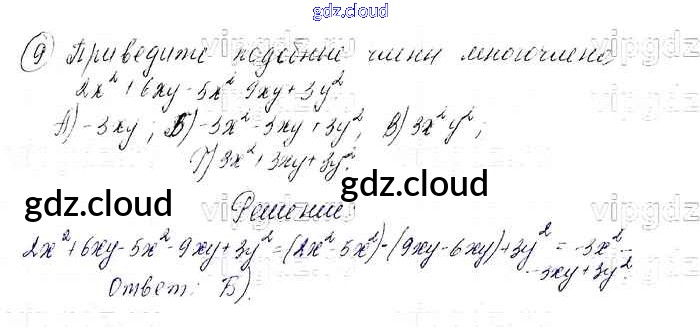 gdz.cloud
9 Приведите подобные члены многочлена
2x² + 6xy - 5x² 9xy + 3y²
А) -3xy ; Б) -3x² - 3xy + 3y² ; В) 3x²y² ;
Г) 3x² + 3xy + 3y².
gdz.cloud
gdz.cloud
Решение:
2x² + 6xy - 5x² - 9xy + 3y² = (2x² - 5x²) - (9xy - 6xy) + 3y² = -3x² -
- 3xy + 3y².
Ответ: Б)